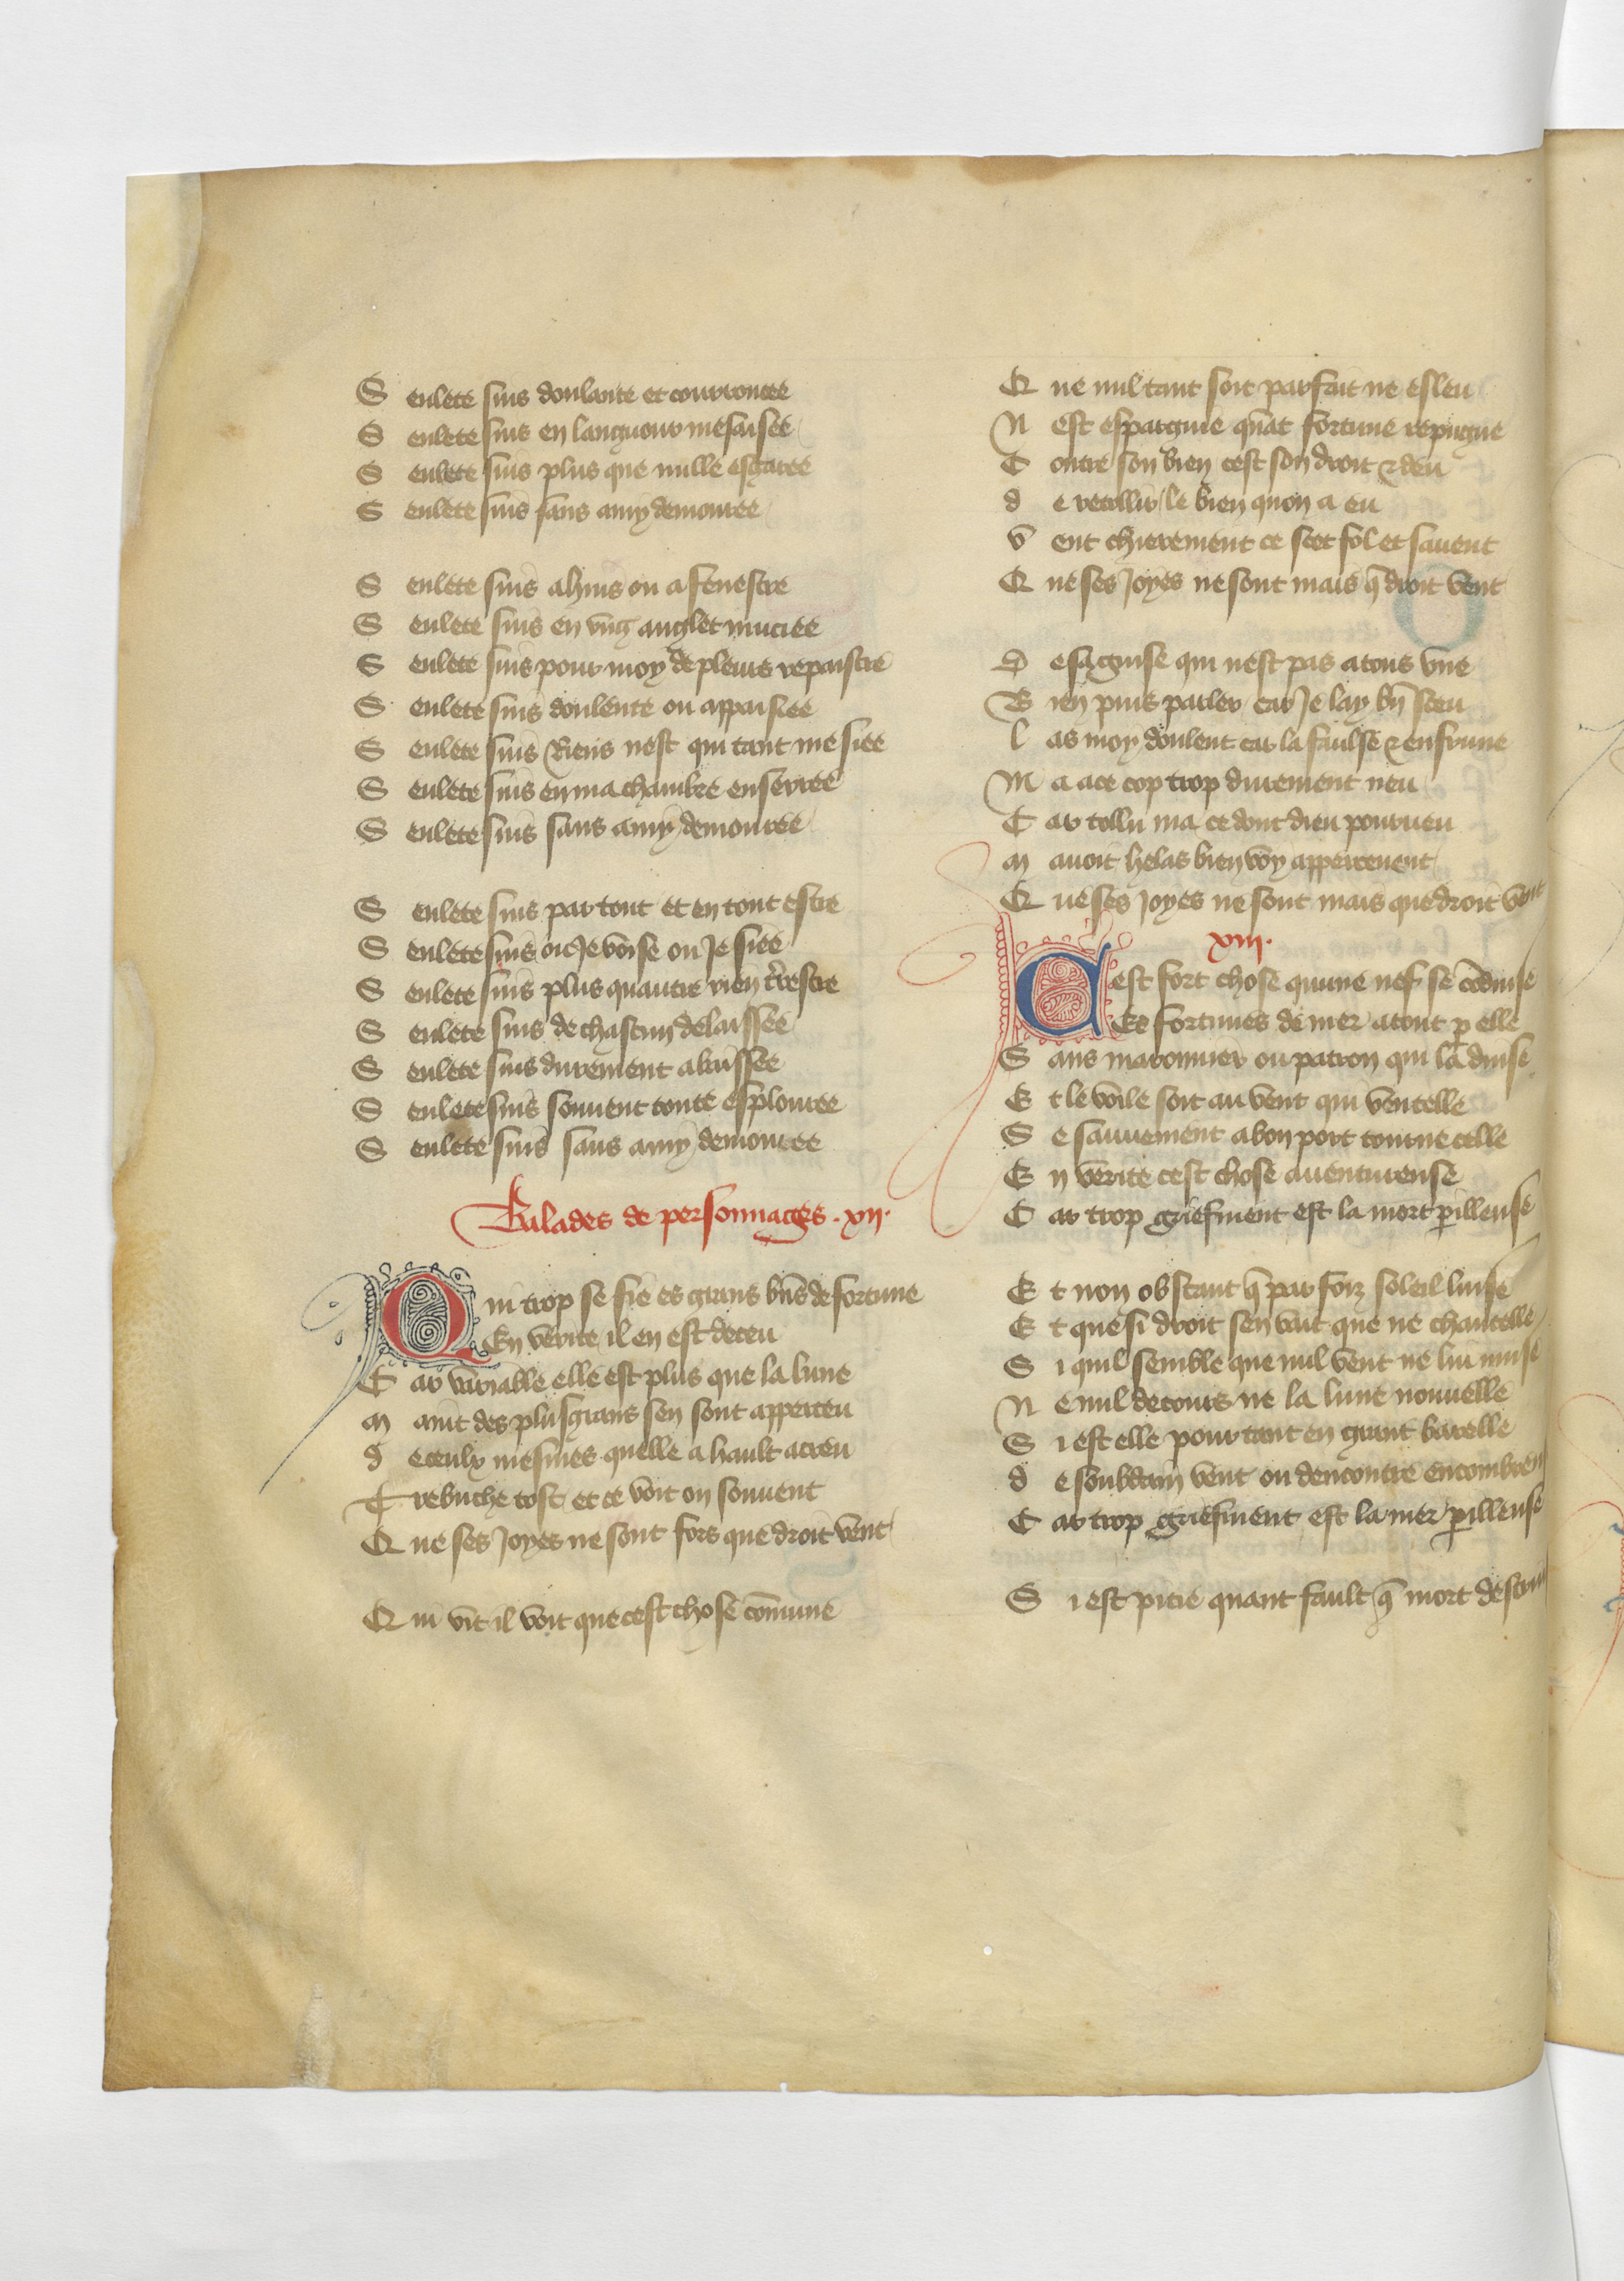 S eulete suis doulante et courroucee
S eulete suis en languour mesaisee
S eulete suis plus que nulle esgaree
S eulete suis sans amy demouree
S eulete suis a lhuis ou a fenestre
S eulete suis en vng anglet muciee
S eulete suis pour moy de pleurs repaistre
S eulete suis doulente ou appaisiee
S eulete suis Riens nest qui tant me siee
S eulete suis en ma chambre enserree
S eulete suis sans amy demouree
S eulete suis partout et en tout estre
S eulete suis ou Je voise ou Je siee
S eulete suis plus quautre rien terrestre
S eulete suis de chascun delaissee
S eulete suis durement abaissee
S eulete suis souuent toute esplouree
S eulete suis sans amy demouree
Balades de personnages .xii.
Q ui trop se fie es grans bn̄s de fortune
En verite il en est deceu
C ar variable elle est plus que la lune
m aint des plus grans sen sont apperceu
d e ceulx mesmes quelle a hault acreu
T rebuche tost et ce voit on souuent
Q ue ses Joyes ne sont fors que droit vent
Q ui vit il voit que cest chose cōmune
Q ue nul tant soit parfait ne esleu
N est espargnie quāt fortune repugne
C ontre son bien cest son droit & deu
d e retollir le bien quon a eu
v ent chierement ce scet fol et sauent
Q ue ses Joyes ne sont mais q̄ droit vent
D e sa guise qui nest pas a tous vne
B ien puis parler car Je lay bn̄ sceu
l as moy doulent car la faulse & enfrune
M a a ce cop trop durement neu
C ar tollu ma ce dont dieu pourueu
m auoit helas bien voy appercement
Q ue ses Joyes ne sont mais que droit vent
xiii.
C est fort chose quune nef se cōduise
Es fortunes de mer a tout p̱ elle
S ans maronnier ou patron qui la duise
E t le voile soit au vent qui ventelle
S e sauuement a bon port tourne celle
E n verite cest chose auentureuse
C ar trop griefment est la mort p̱illeuse
E t non obstant q̄ par foiz soleil luise
E t que si droit sen vait que ne chancelle
S i quil semble que nul vent ne lui nuise
N e nul decours ne la lune nouuelle
S i est elle pourtant en grant barelle
d e soubdain vent ou dencontre encombreu
C ar trop griefment est la mer p̱illeuse
S i est pitie quant fault q̄ mort destrui